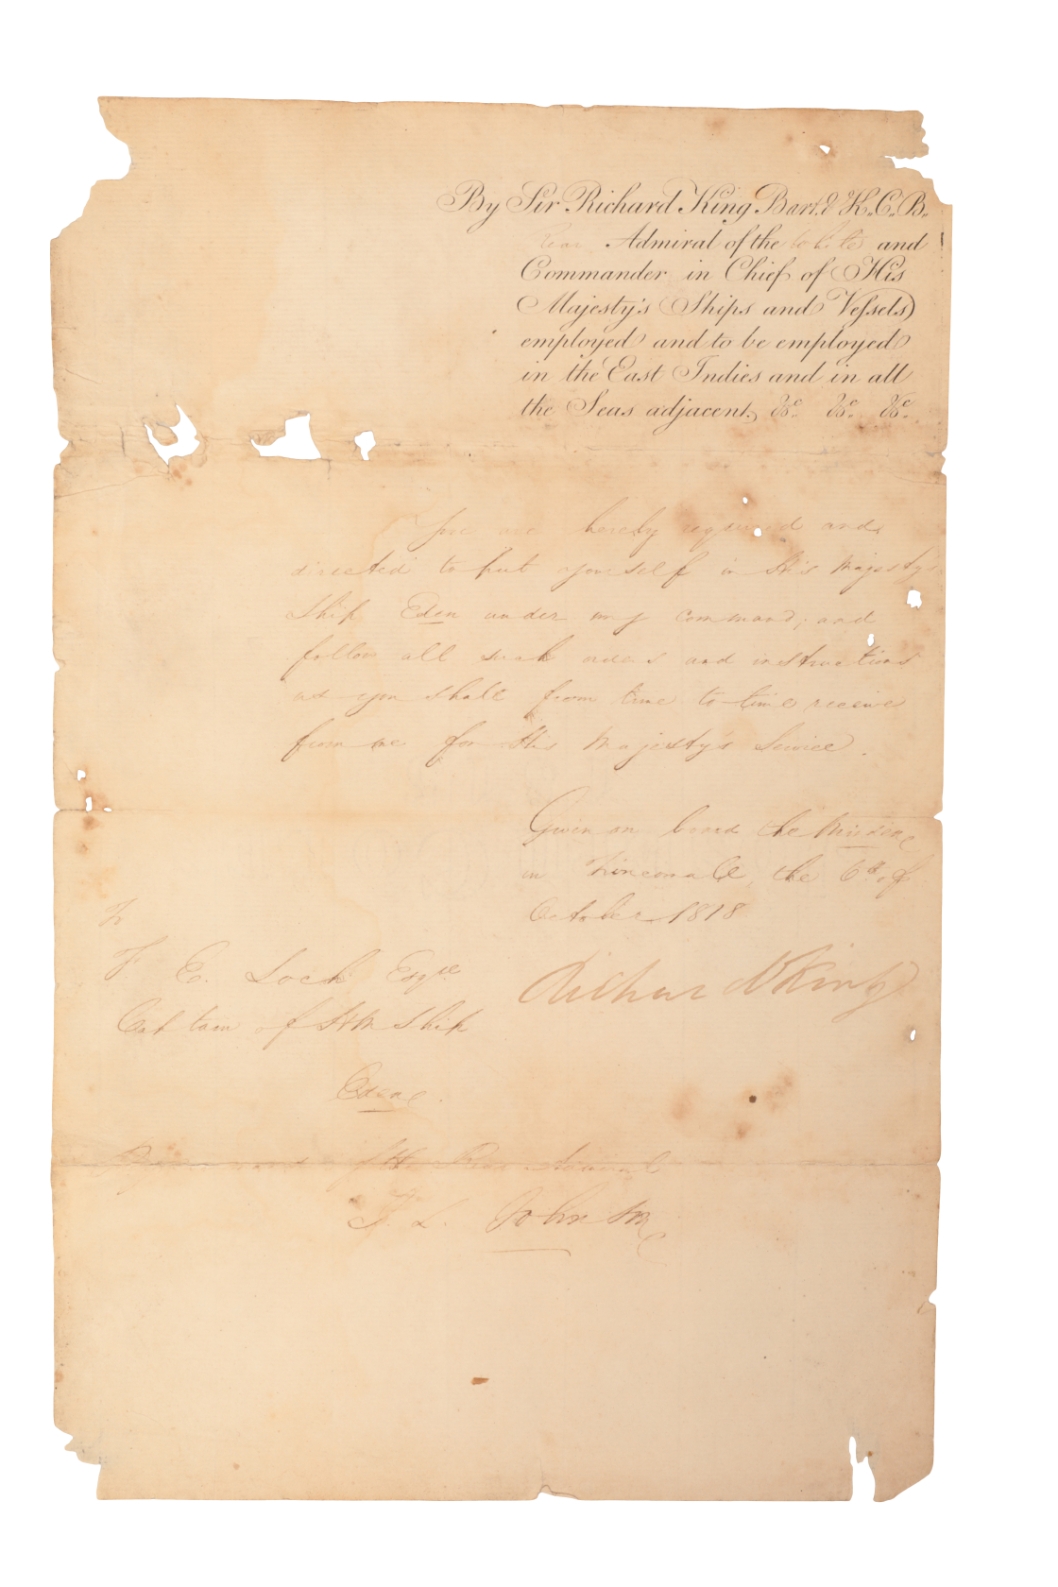 By Sir Richard King Bart. & K.C.B.
Rear Admiral of the White and
Commander in Chief of His
Majesty's Ships and Vessels
employed and to be employed
in the East Indies and in all
the Seas adjacent, &c. &c. &c.
You are hereby required and
directed to put yourself in His Majesty's
Ship Eden under my command, and
follow all such orders and instructions
as you shall from time to time receive
from me for His Majesty's Service.
Given on board the Minden
in Trincomale, the 6th of
October 1818
To
F E. Loch Esqre
Captain of HM Ship
Eden.
Richard King
By command of the Rear Admiral
F. L. Johnson